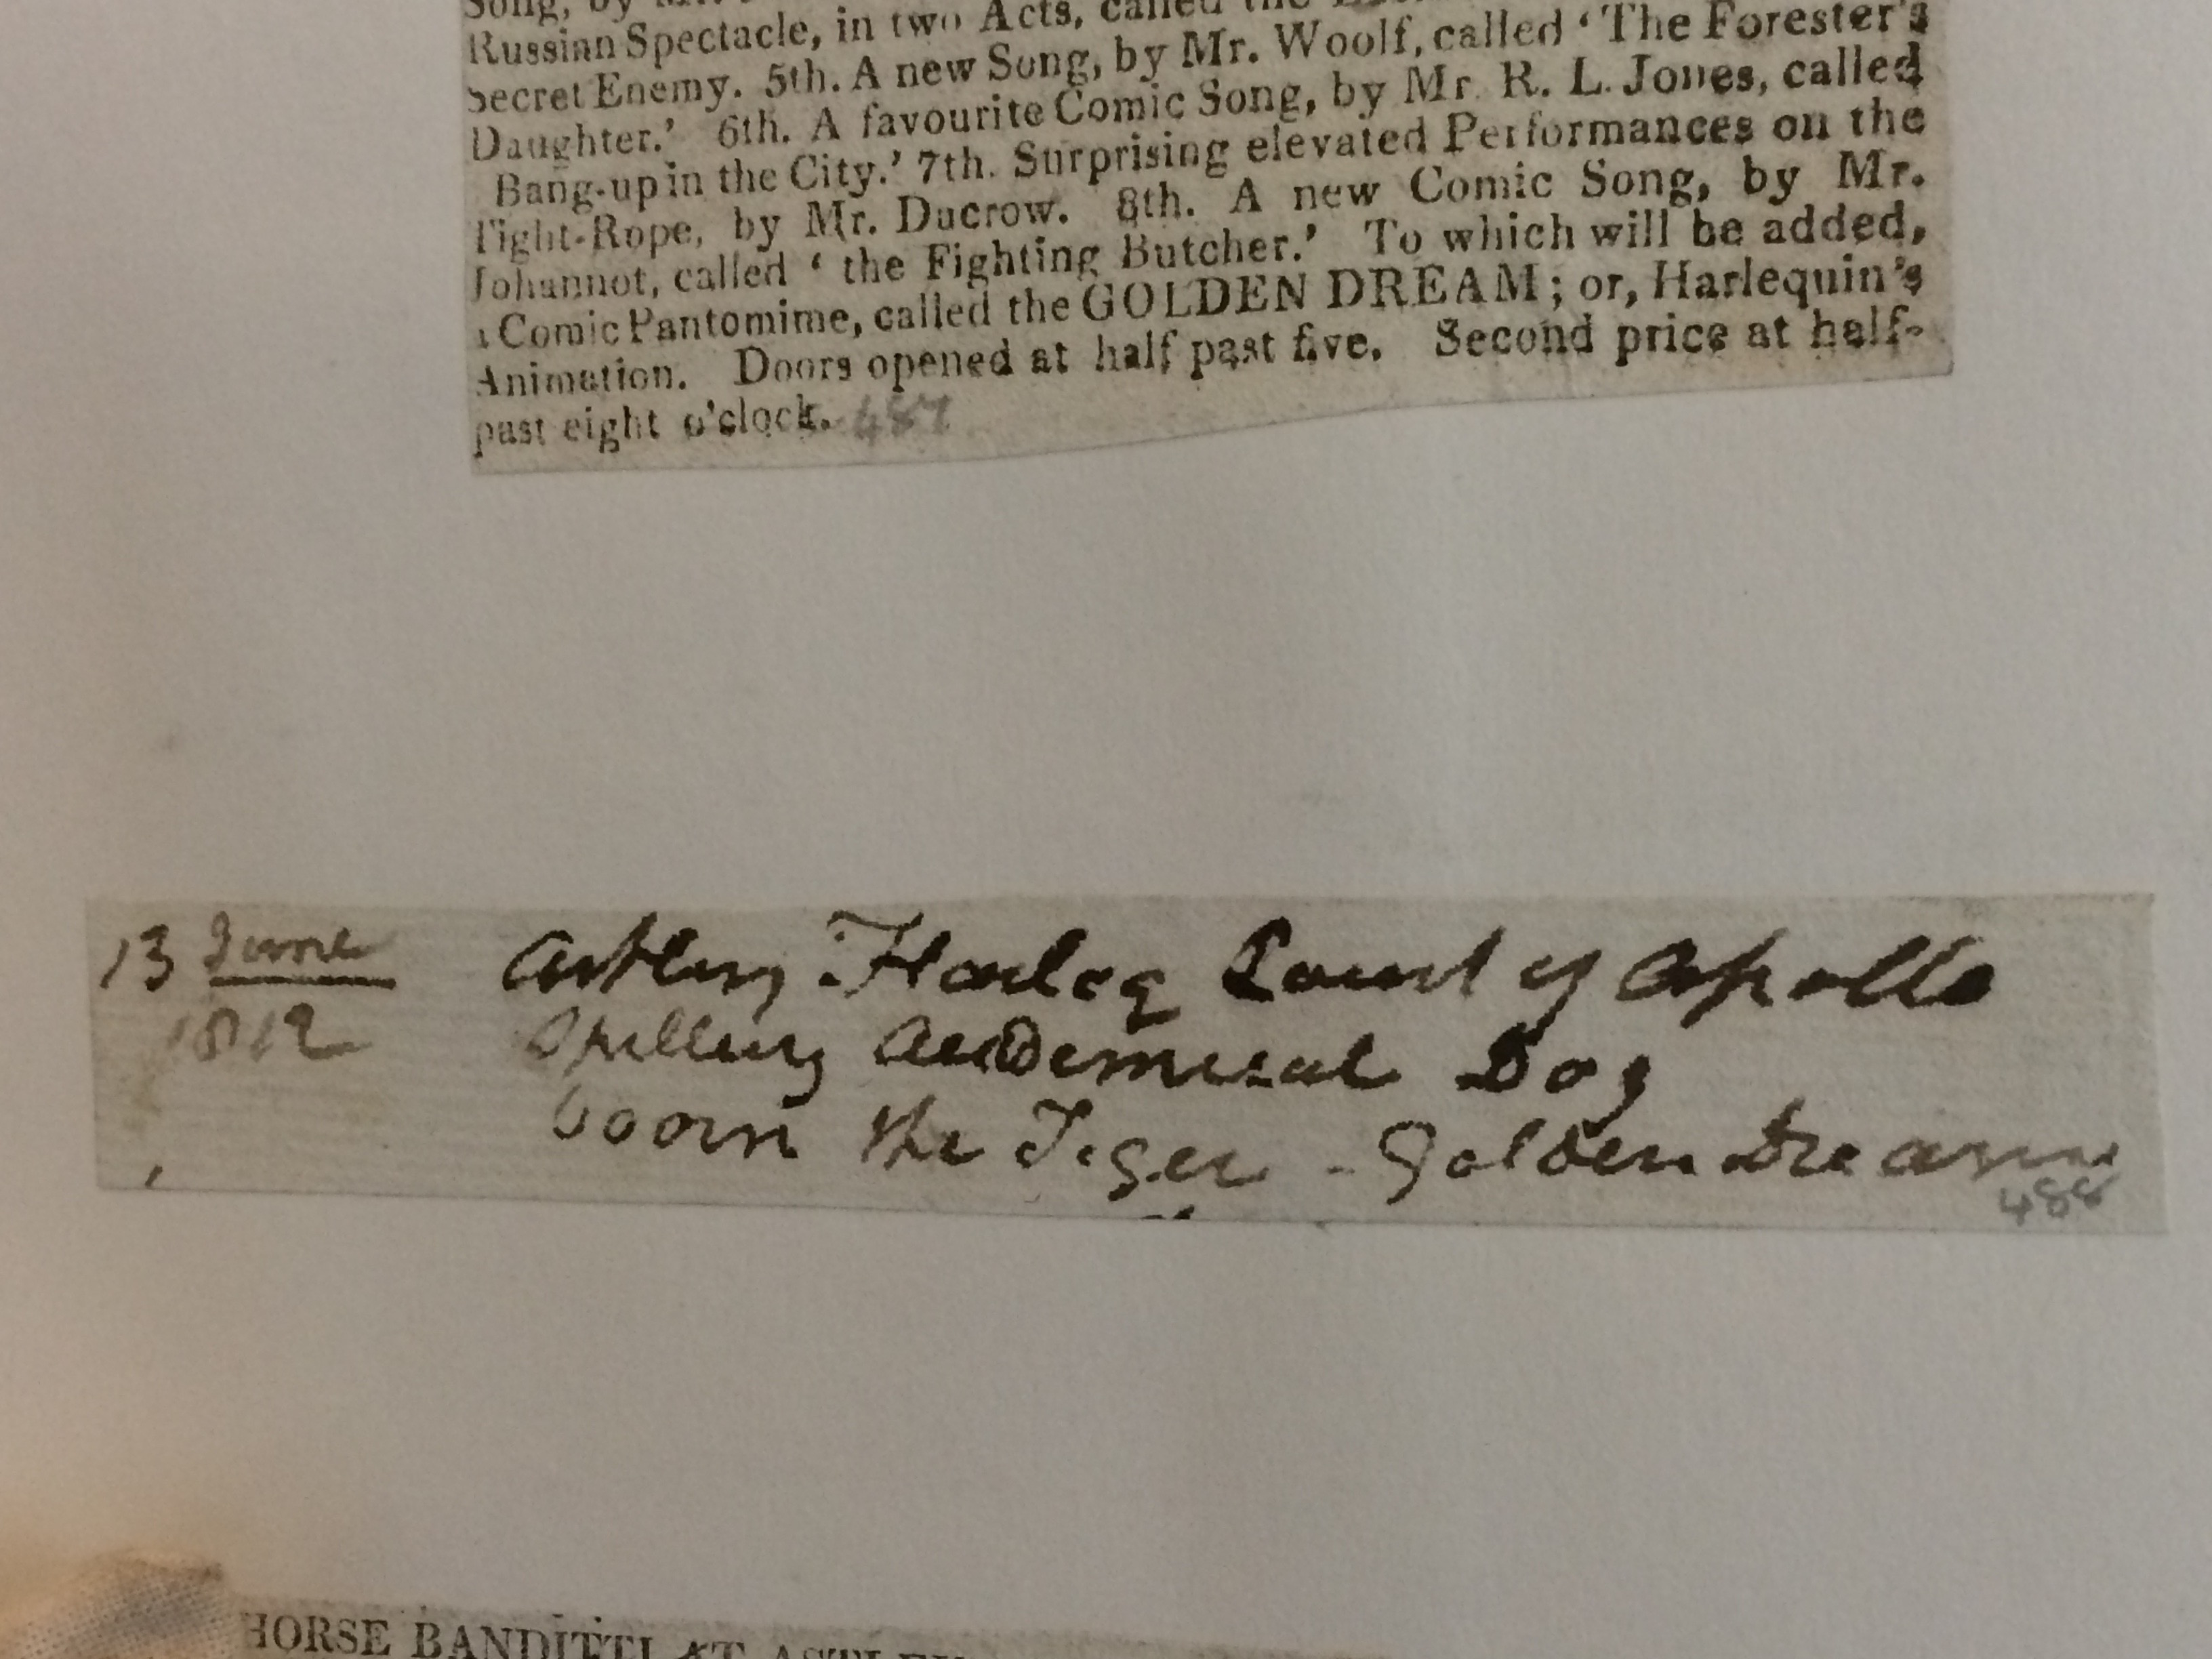 Song, by Mr.
Russian Spectacle, in two Acts, called the
Secret Enemy. 5th. A new Song, by Mr. Woolf, called ‘The Forester's
Daughter.’ 6th. A favourite Comic Song, by Mr. R. L. Jones, called
Bang-up in the City.’ 7th. Surprising elevated Performances on the
Tight-Rope, by Mr. Ducrow. 8th. A new Comic Song, by Mr.
Johannot, called ‘ the Fighting Butcher.’ To which will be added,
a Comic Pantomime, called the GOLDEN DREAM; or, Harlequin's
Animation. Doors opened at half past five. Second price at half-
past eight o'clock. 487
13 June Astleys Harleq Court of Apollo
1812 Spelling Academical Dog
the Tiger - Golden Dream
488
HORSE BANDITTI AT